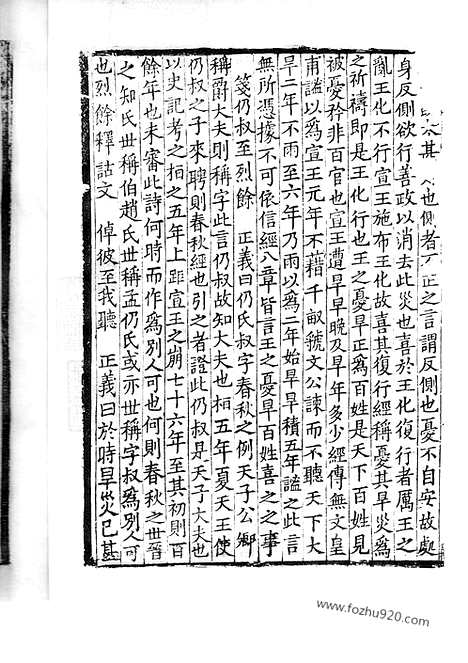 其 也側者 正之言謂反側也憂不自安故處
身反側欲行善政以消去此災也喜於王化復行者厲王之
亂王化不行宣王施布王化故喜其復行經稱憂其旱災爲
之祈禱即是王化行也王之憂旱正爲百姓是天下百姓見
被憂矜非百官也宣王遭旱早晚及旱年多少經傳無文皇
甫謐以爲宣王元年不藉千畝虢文公諫而不聽天下大
旱二年不雨至六年乃雨以爲二年始旱旱積五年謐之此言
無所憑據不可依信經八章皆言王之憂旱百姓喜之之事
箋仍叔至烈餘 正義曰仍氏叔字春秋之例天子公卿
稱爵大夫則稱字此言仍叔故知大夫也桓五年夏天王使
仍叔之子來聘則春秋經也引之者證此仍叔是天子大夫也
以史記考之桓之五年上距宣王之崩七十六年至其初則百
餘年也未審此詩何時而作爲別人可也何則春秋之世晉
之知氏世稱伯趙氏世稱孟仍氏或亦世稱字叔爲別人可
也烈餘釋詁文 倬彼至我聽 正義曰於時旱災已甚
www.fozhu920.com